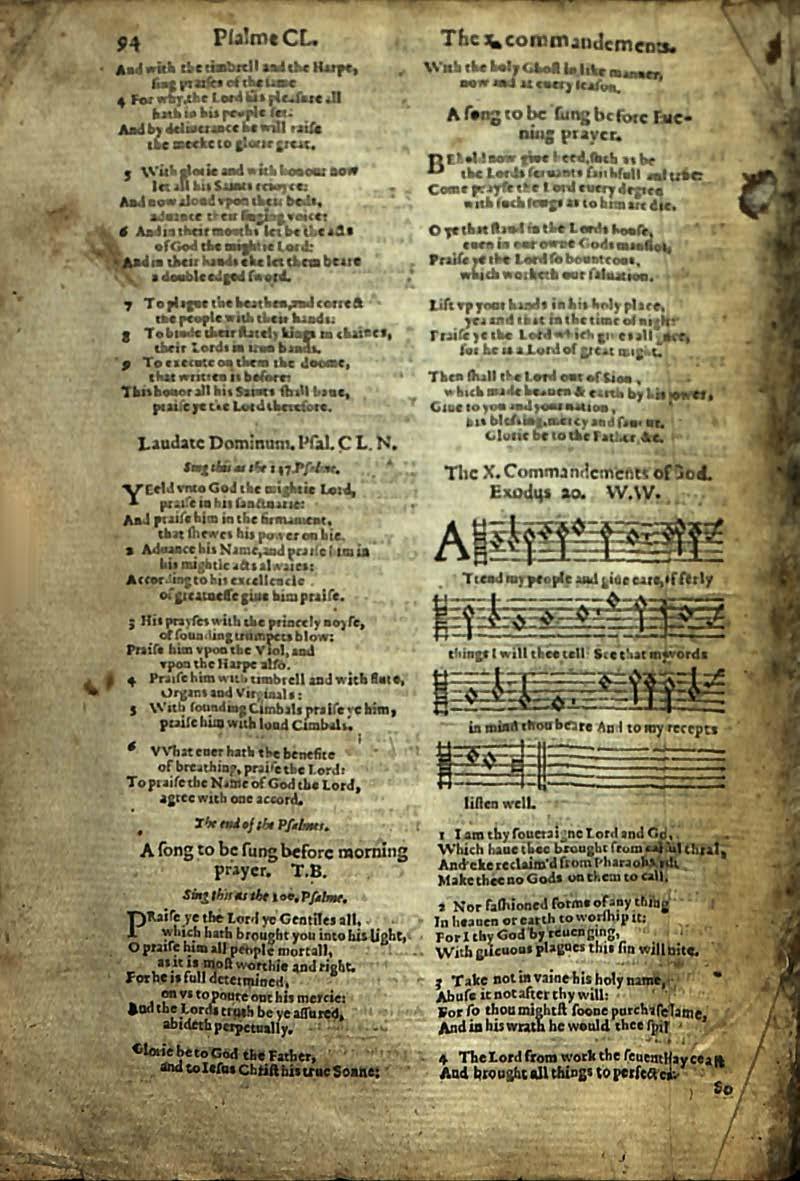 94
Psalme CL.
And with the timbrell and the Harpe,
sing praises of the same
4 For why, the Lord his pleasure all
hath in his people set:
And by deliverance he will raise
the meeke to glorie great.
5 With glorie and with honour now
let all his Saints reioyce:
And now aloud vpon their beds,
aduance their singing voice:
6 And in their mouths let be the acts
of God the mightie Lord:
And in their hands eke let them beare
a double edged sword.
7 To plague the heathen, and correct
the people with their hands:
8 To binde their stately kings in chaines,
their Lords in iron bands.
9 To execute on them the doome,
that written is before:
This honor all his Saints shall haue,
praise ye the Lord therefore.
Laudate Dominum. Psal. C L. N.
Sing this as the 147. Psalme.
YEeld vnto God the mightie Lord,
praise in his sanctuarie:
And praise him in the firmament,
that shewes his power on hie.
2 Aduance his Name, and praise him in
his mightie acts alwaies:
According to his excellencie
of greatnesse giue him praise.
3 His prayses with the princely noyse,
of sounding trumpets blow:
Praise him vpon the Viol, and
vpon the Harpe also.
4 Praise him with timbrell and with flute,
Organs and Virginals:
5 With sounding Cimbals praise ye him,
praise him with loud Cimbals.
6 VVhat euer hath the benefite
of breathing, praise the Lord:
To praise the Name of God the Lord,
agree with one accord.
The end of the Psalmes.
A song to be sung before morning
prayer. T.B.
Sing this as the 100. Psalme.
PRaise ye the Lord ye Gentiles all,
which hath brought you into his light,
O praise him all people mortall,
as it is most worthie and right.
For he is full determined,
on vs to poure out his mercie:
And the Lords truth be ye assured,
abideth perpetually.
Glorie be to God the Father,
and to Iesus Christ his true Sonne:
The x. commandements.
With the holy Ghost in like manner,
now and at euery season.
A song to be sung before Eue-
ning prayer.
BEhold now giue heed, such as be
the Lords seruants faithfull and true:
Come prayse the Lord euery degree
with such songs as to him are due.
O ye that stand in the Lords house,
euen in our owne Gods mansion,
Praise ye the Lord so bounteous,
which worketh our saluation.
Lift vp your hands in his holy place,
yea and that in the time of night
Praise ye the Lord which giues all grace,
for he is a Lord of great might.
Then shall the Lord out of Sion,
which made heauen & earth by his power,
Giue to you and your nation,
his blessing, mercy and fauour.
Glorie be to the Father, &c.
The X. Commandements of God.
Exodus 20. W.W.
ATtend my people and giue eare, of ferly
things I will thee tell See that my words
in mind thou beare And to my recepts
listen well.
1 I am thy soueraigne Lord and God,
Which haue thee brought from careful thral,
And eke reclaim'd from Pharaohs rod,
Make thee no Gods on them to call.
2 Nor fashioned forme of any thing
In heauen or earth to worship it:
For I thy God by reuenging,
With grieuous plagues this sin will bite.
3 Take not in vaine his holy name,
Abuse it not after thy will:
For so thou mightst soone purchase lame,
And in his wrath he would thee spil
4 The Lord from work the seuenth day ceast
And brought all things to perfect
So